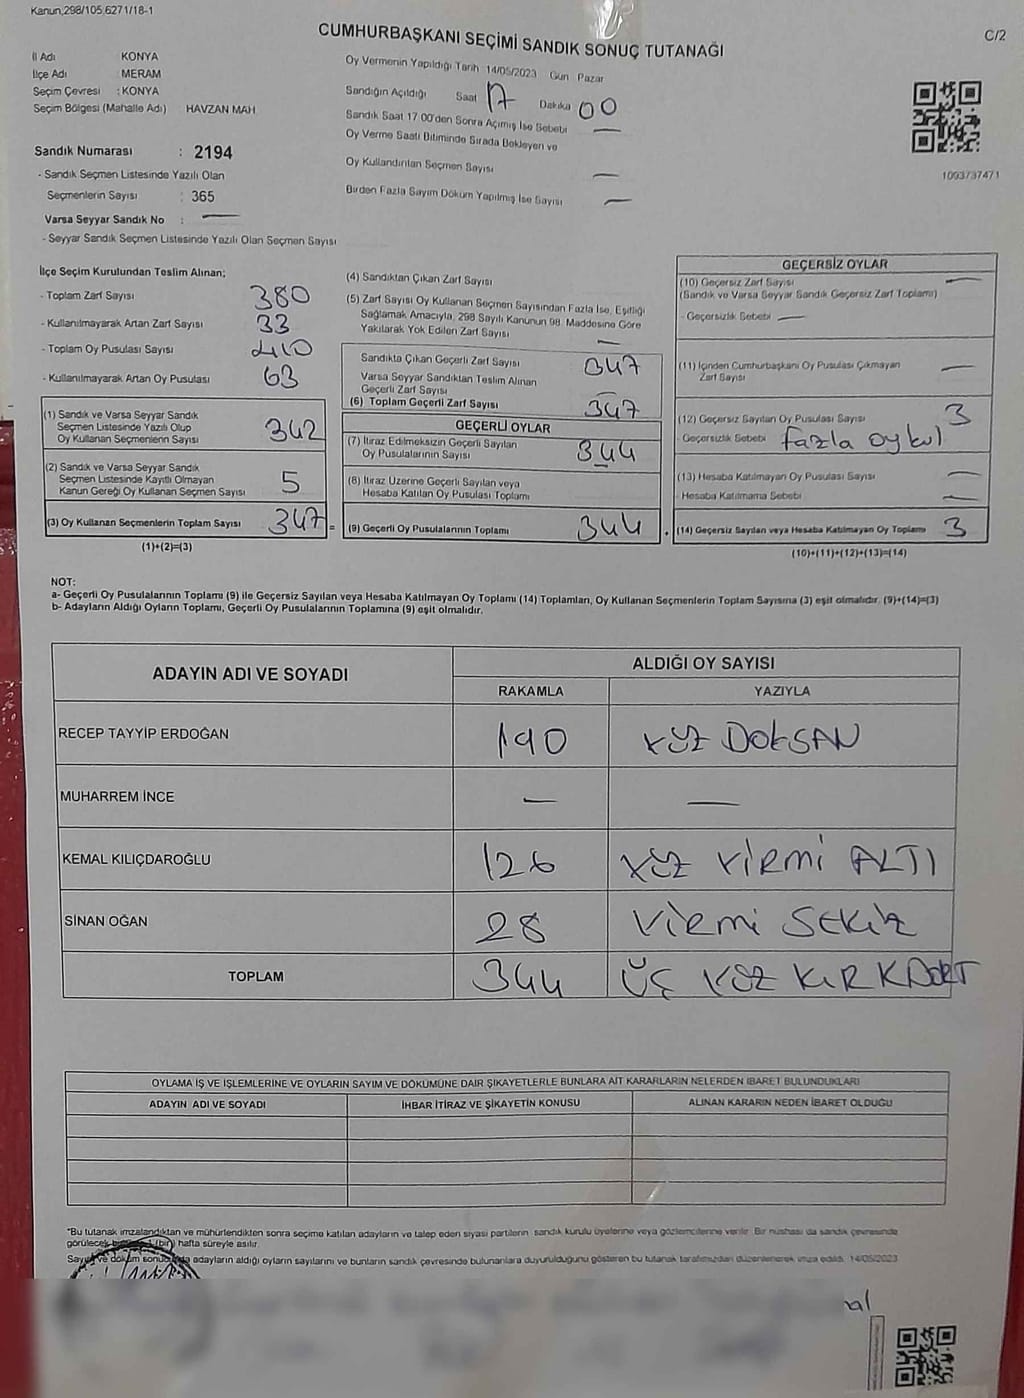 Kanun;298/105,6271/18-1
CUMHURBAŞKANI SEÇİMİ SANDIK SONUÇ TUTANAĞI
C/2
İl Adı KONYA
İlçe Adı : MERAM
Seçim Çevresi : KONYA
Seçim Bölgesi (Mahalle Adı) HAVZAN MAH
Oy Vermenin Yapıldığı Tarih 14/05/2023 Gün Pazar
Sandığın Açıldığı Saat 17 Dakika 00
Sandık Saat 17 00'den Sonra Açımış İse Sebebi —
Oy Verme Saati Bitiminde Sırada Bekleyen ve
Oy Kullandırılan Seçmen Sayısı —
Birden Fazla Sayım Döküm Yapılmış İse Sayısı —
1093737471
Sandık Numarası : 2194
- Sandık Seçmen Listesinde Yazılı Olan
Seçmenlerin Sayısı : 365
Varsa Seyyar Sandık No : —
- Seyyar Sandık Seçmen Listesinde Yazılı Olan Seçmen Sayısı
İlçe Seçim Kurulundan Teslim Alınan;
- Toplam Zarf Sayısı 380
- Kullanılmayarak Artan Zarf Sayısı 33
- Toplam Oy Pusulası Sayısı 410
- Kullanılmayarak Artan Oy Pusulası 63
(1) Sandık ve Varsa Seyyar Sandık
Seçmen Listesinde Yazılı Olup
Oy Kullanan Seçmenlerin Sayısı 342
(2) Sandık ve Varsa Seyyar Sandık
Seçmen Listesinde Kayıtlı Olmayan
Kanun Gereği Oy Kullanan Seçmen Sayısı 5
(3) Oy Kullanan Seçmenlerin Toplam Sayısı 347 =
(1)+(2)=(3)
(4) Sandıktan Çıkan Zarf Sayısı
(5) Zarf Sayısı Oy Kullanan Seçmen Sayısından Fazla İse, Eşitliği
Sağlamak Amacıyla, 298 Sayılı Kanunun 98. Maddesine Göre
Yakılarak Yok Edilen Zarf Sayısı —
Sandıkta Çıkan Geçerli Zarf Sayısı 347
Varsa Seyyar Sandıktan Teslim Alınan
Geçerli Zarf Sayısı —
(6) Toplam Geçerli Zarf Sayısı 347
GEÇERLİ OYLAR
(7) İtiraz Edilmeksizin Geçerli Sayılan
Oy Pusulalarının Sayısı 344
(8) İtiraz Üzerine Geçerli Sayılan veya
Hesaba Katılan Oy Pusulası Toplamı —
(9) Geçerli Oy Pusulalarının Toplamı 344
GEÇERSİZ OYLAR
(10) Geçersiz Zarf Sayısı —
(Sandık ve Varsa Seyyar Sandık Geçersiz Zarf Toplamı)
- Geçersizlik Sebebi —
(11) İçinden Cumhurbaşkanı Oy Pusulası Çıkmayan
Zarf Sayısı —
(12) Geçersiz Sayılan Oy Pusulası Sayısı 3
- Geçersizlik Sebebi fazla oy kul
(13) Hesaba Katılmayan Oy Pusulası Sayısı —
- Hesaba Katılmama Sebebi —
(14) Geçersiz Sayılan veya Hesaba Katılmayan Oy Toplamı 3
(10)+(11)+(12)+(13)=(14)
NOT:
a- Geçerli Oy Pusulalarının Toplamı (9) ile Geçersiz Sayılan veya Hesaba Katılmayan Oy Toplamı (14) Toplamları, Oy Kullanan Seçmenlerin Toplam Sayısına (3) eşit olmalıdır. (9)+(14)=(3)
b- Adayların Aldığı Oyların Toplamı, Geçerli Oy Pusulalarının Toplamına (9) eşit olmalıdır.
ADAYIN ADI VE SOYADI ALDIĞI OY SAYISI
RAKAMLA YAZIYLA
RECEP TAYYİP ERDOĞAN 190 YÜZ DOKSAN
MUHARREM İNCE — —
KEMAL KILIÇDAROĞLU 126 YÜZ YİRMİ ALTI
SİNAN OĞAN 28 YİRMİ SEKİZ
TOPLAM 344 ÜÇ YÜZ KIRK DÖRT
OYLAMA İŞ VE İŞLEMLERİNE VE OYLARIN SAYIM VE DÖKÜMÜNE DAİR ŞİKAYETLERLE BUNLARA AİT KARARLARIN NELERDEN İBARET BULUNDUKLARI
ADAYIN ADI VE SOYADI İHBAR İTİRAZ VE ŞİKAYETİN KONUSU ALINAN KARARIN NEDEN İBARET OLDUĞU
"Bu tutanak imzalandıktan ve mühürlendikten sonra seçime katılan adayların ve talep eden siyasi partilerin sandık kurulu üyelerine veya gözlemcilerine verilir. Bir nüshası da sandık çevresinde
görülecek (bir) hafta süreyle asılır.
Sayım ve döküm adayların aldığı oyların sayılarını ve bunların sandık çevresinde bulunanlara duyurulduğunu gösteren bu tutanak tarafımızdan düzenlenerek imza edildi. 14/05/2023